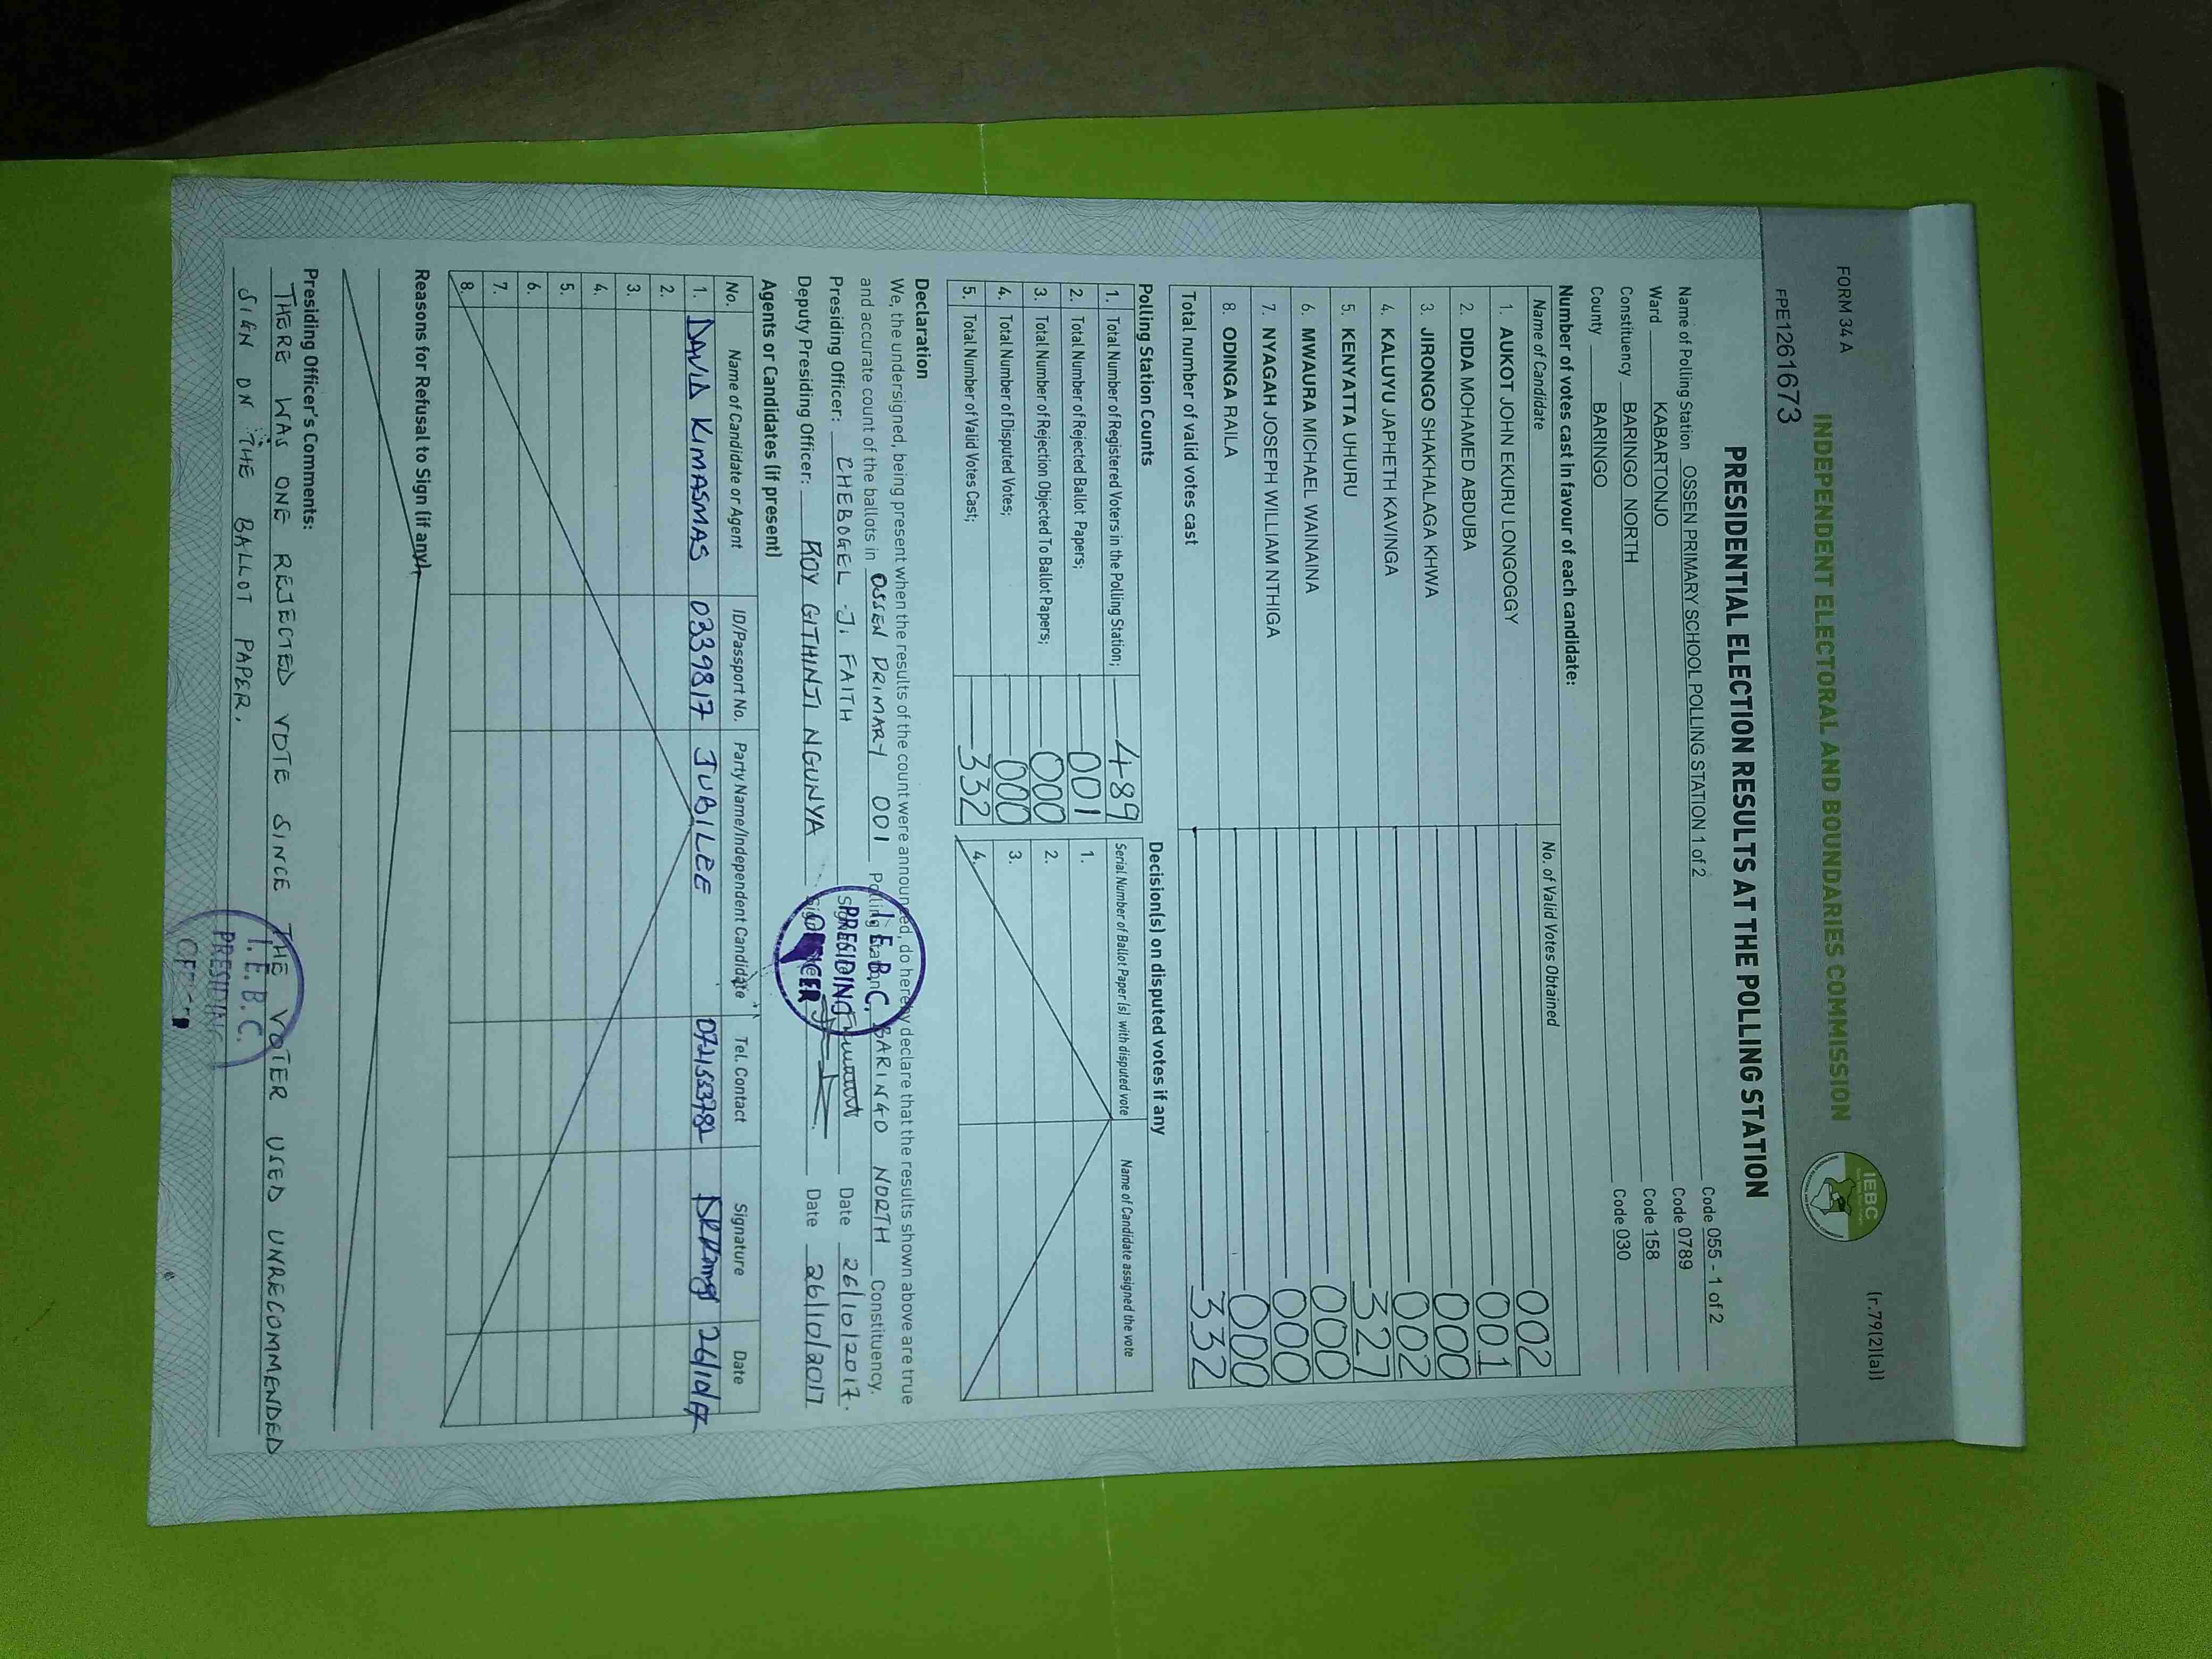 FORM 34 A
(r.79(2)(a))
INDEPENDENT ELECTORAL AND BOUNDARIES COMMISSION
IEBC
FPE1261673
PRESIDENTIAL ELECTION RESULTS AT THE POLLING STATION
Name of Polling Station OSSEN PRIMARY SCHOOL POLLING STATION 1 of 2 Code 055 - 1 of 2
Ward KABARTONJO Code 0789
Constituency BARINGO NORTH Code 158
County BARINGO Code 030
Number of votes cast in favour of each candidate:
Name of Candidate No. of Valid Votes Obtained
1. AUKOT JOHN EKURU LONGOGGY 002
2. DIDA MOHAMED ABDUBA 001
3. JIRONGO SHAKHALAGA KHWA 000
4. KALUYU JAPHETH KAVINGA 002
5. KENYATTA UHURU 327
6. MWAURA MICHAEL WAINAINA 000
7. NYAGAH JOSEPH WILLIAM NTHIGA 000
8. ODINGA RAILA 000
Total number of valid votes cast 332
Polling Station Counts
1. Total Number of Registered Voters in the Polling Station; 489
2. Total Number of Rejected Ballot Papers; 001
3. Total Number of Rejection Objected To Ballot Papers; 000
4. Total Number of Disputed Votes; 000
5. Total Number of Valid Votes Cast; 332
Decision(s) on disputed votes if any
Serial Number of Ballot Paper(s) with disputed vote Name of Candidate assigned the vote
1.
2.
3.
4.
Declaration
We, the undersigned, being present when the results of the count were announced, do hereby declare that the results shown above are true
and accurate count of the ballots in OSSEN PRIMARY 001 Polling Station BARINGO NORTH Constituency.
Presiding Officer: CHEBOGEL .J. FAITH Date 26/10/2017.
Deputy Presiding Officer: ROY GITHINJI NGUNYA Date 26/10/2017
I.E.B.C.
PRESIDING
OFFICER
Agents or Candidates (if present)
No. Name of Candidate or Agent ID/Passport No. Party Name/Independent Candidate Tel. Contact Signature Date
1. DAVID KIMASMAS 0339817 JUBILEE 0721553782 26/10/17
2.
3.
4.
5.
6.
7.
8.
Reasons for Refusal to Sign (if any)
Presiding Officer's Comments:
THERE WAS ONE REJECTED VOTE SINCE THE VOTER USED UNRECOMMENDED
SIGN ON THE BALLOT PAPER.
I.E.B.C.
PRESIDING
OFFICER